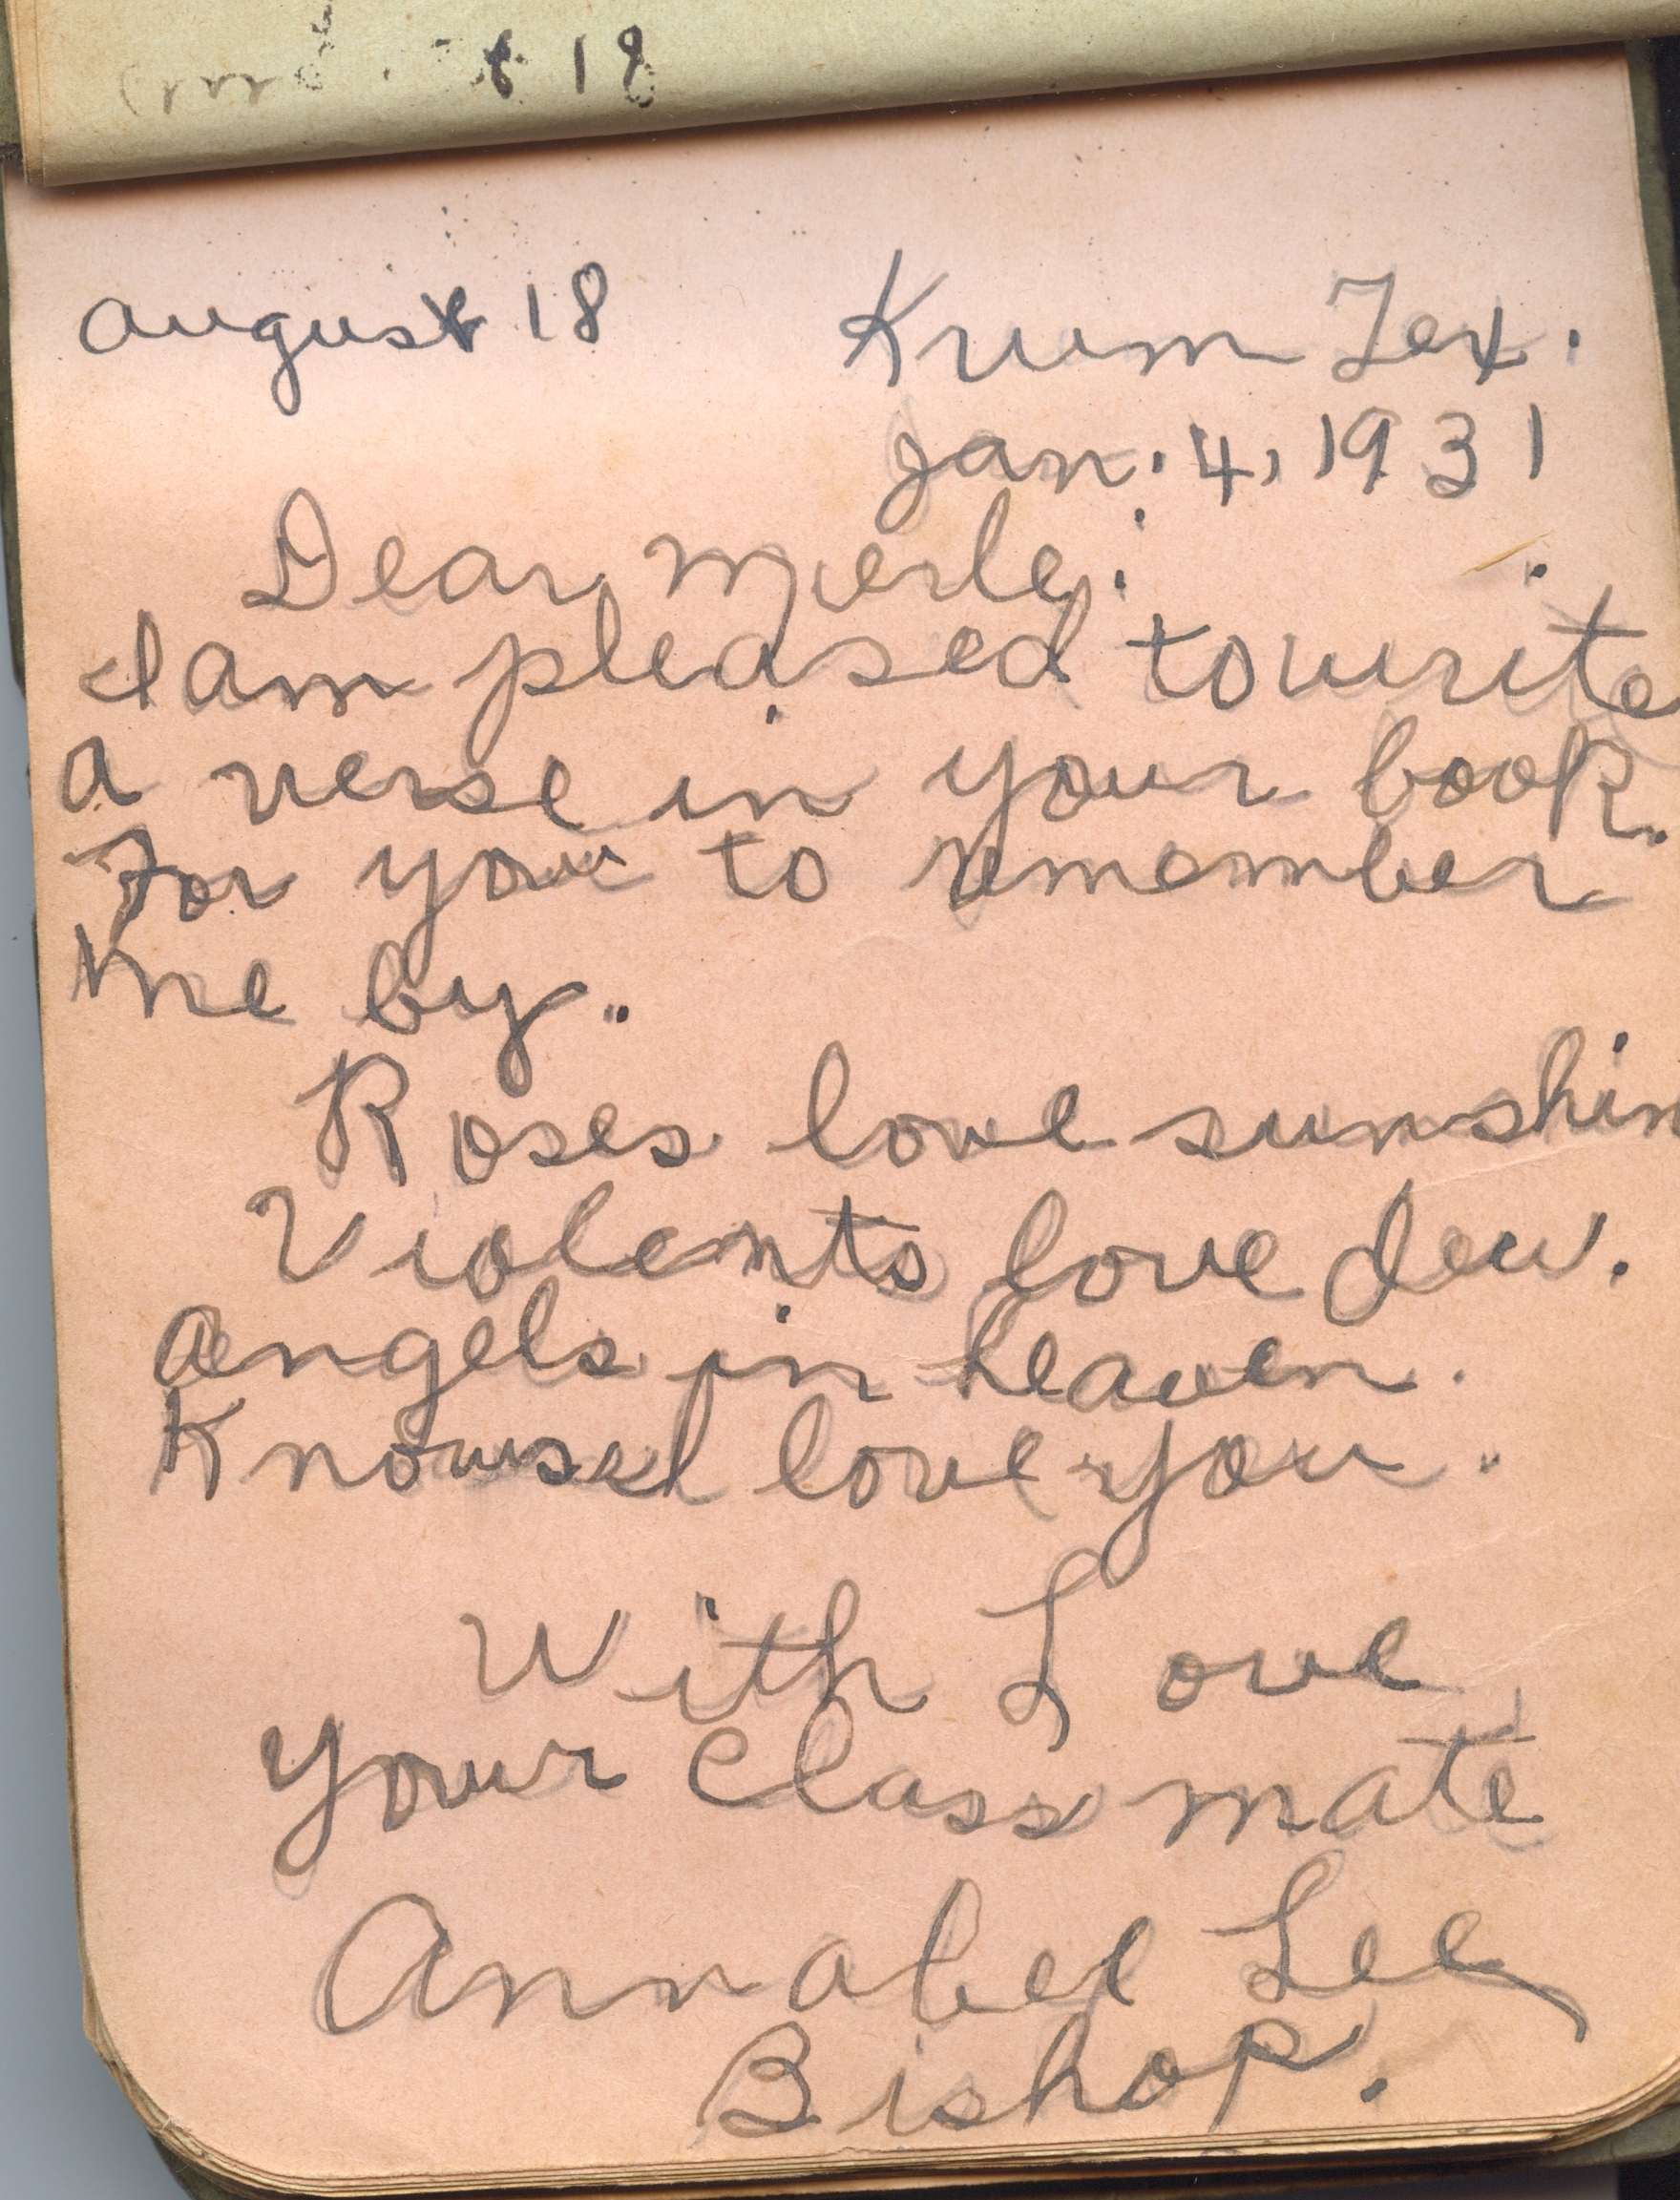 August 18 Krum Tex.
Jan. 4, 1931
Dear Merle:
I am pleased to write
a verse in your book.
For you to remember
me by.
Roses love sunshin
Violents love dew.
Angels in heaven.
Knows I love you.
With Love
your Class mate
Annabel Lee
Bishop.